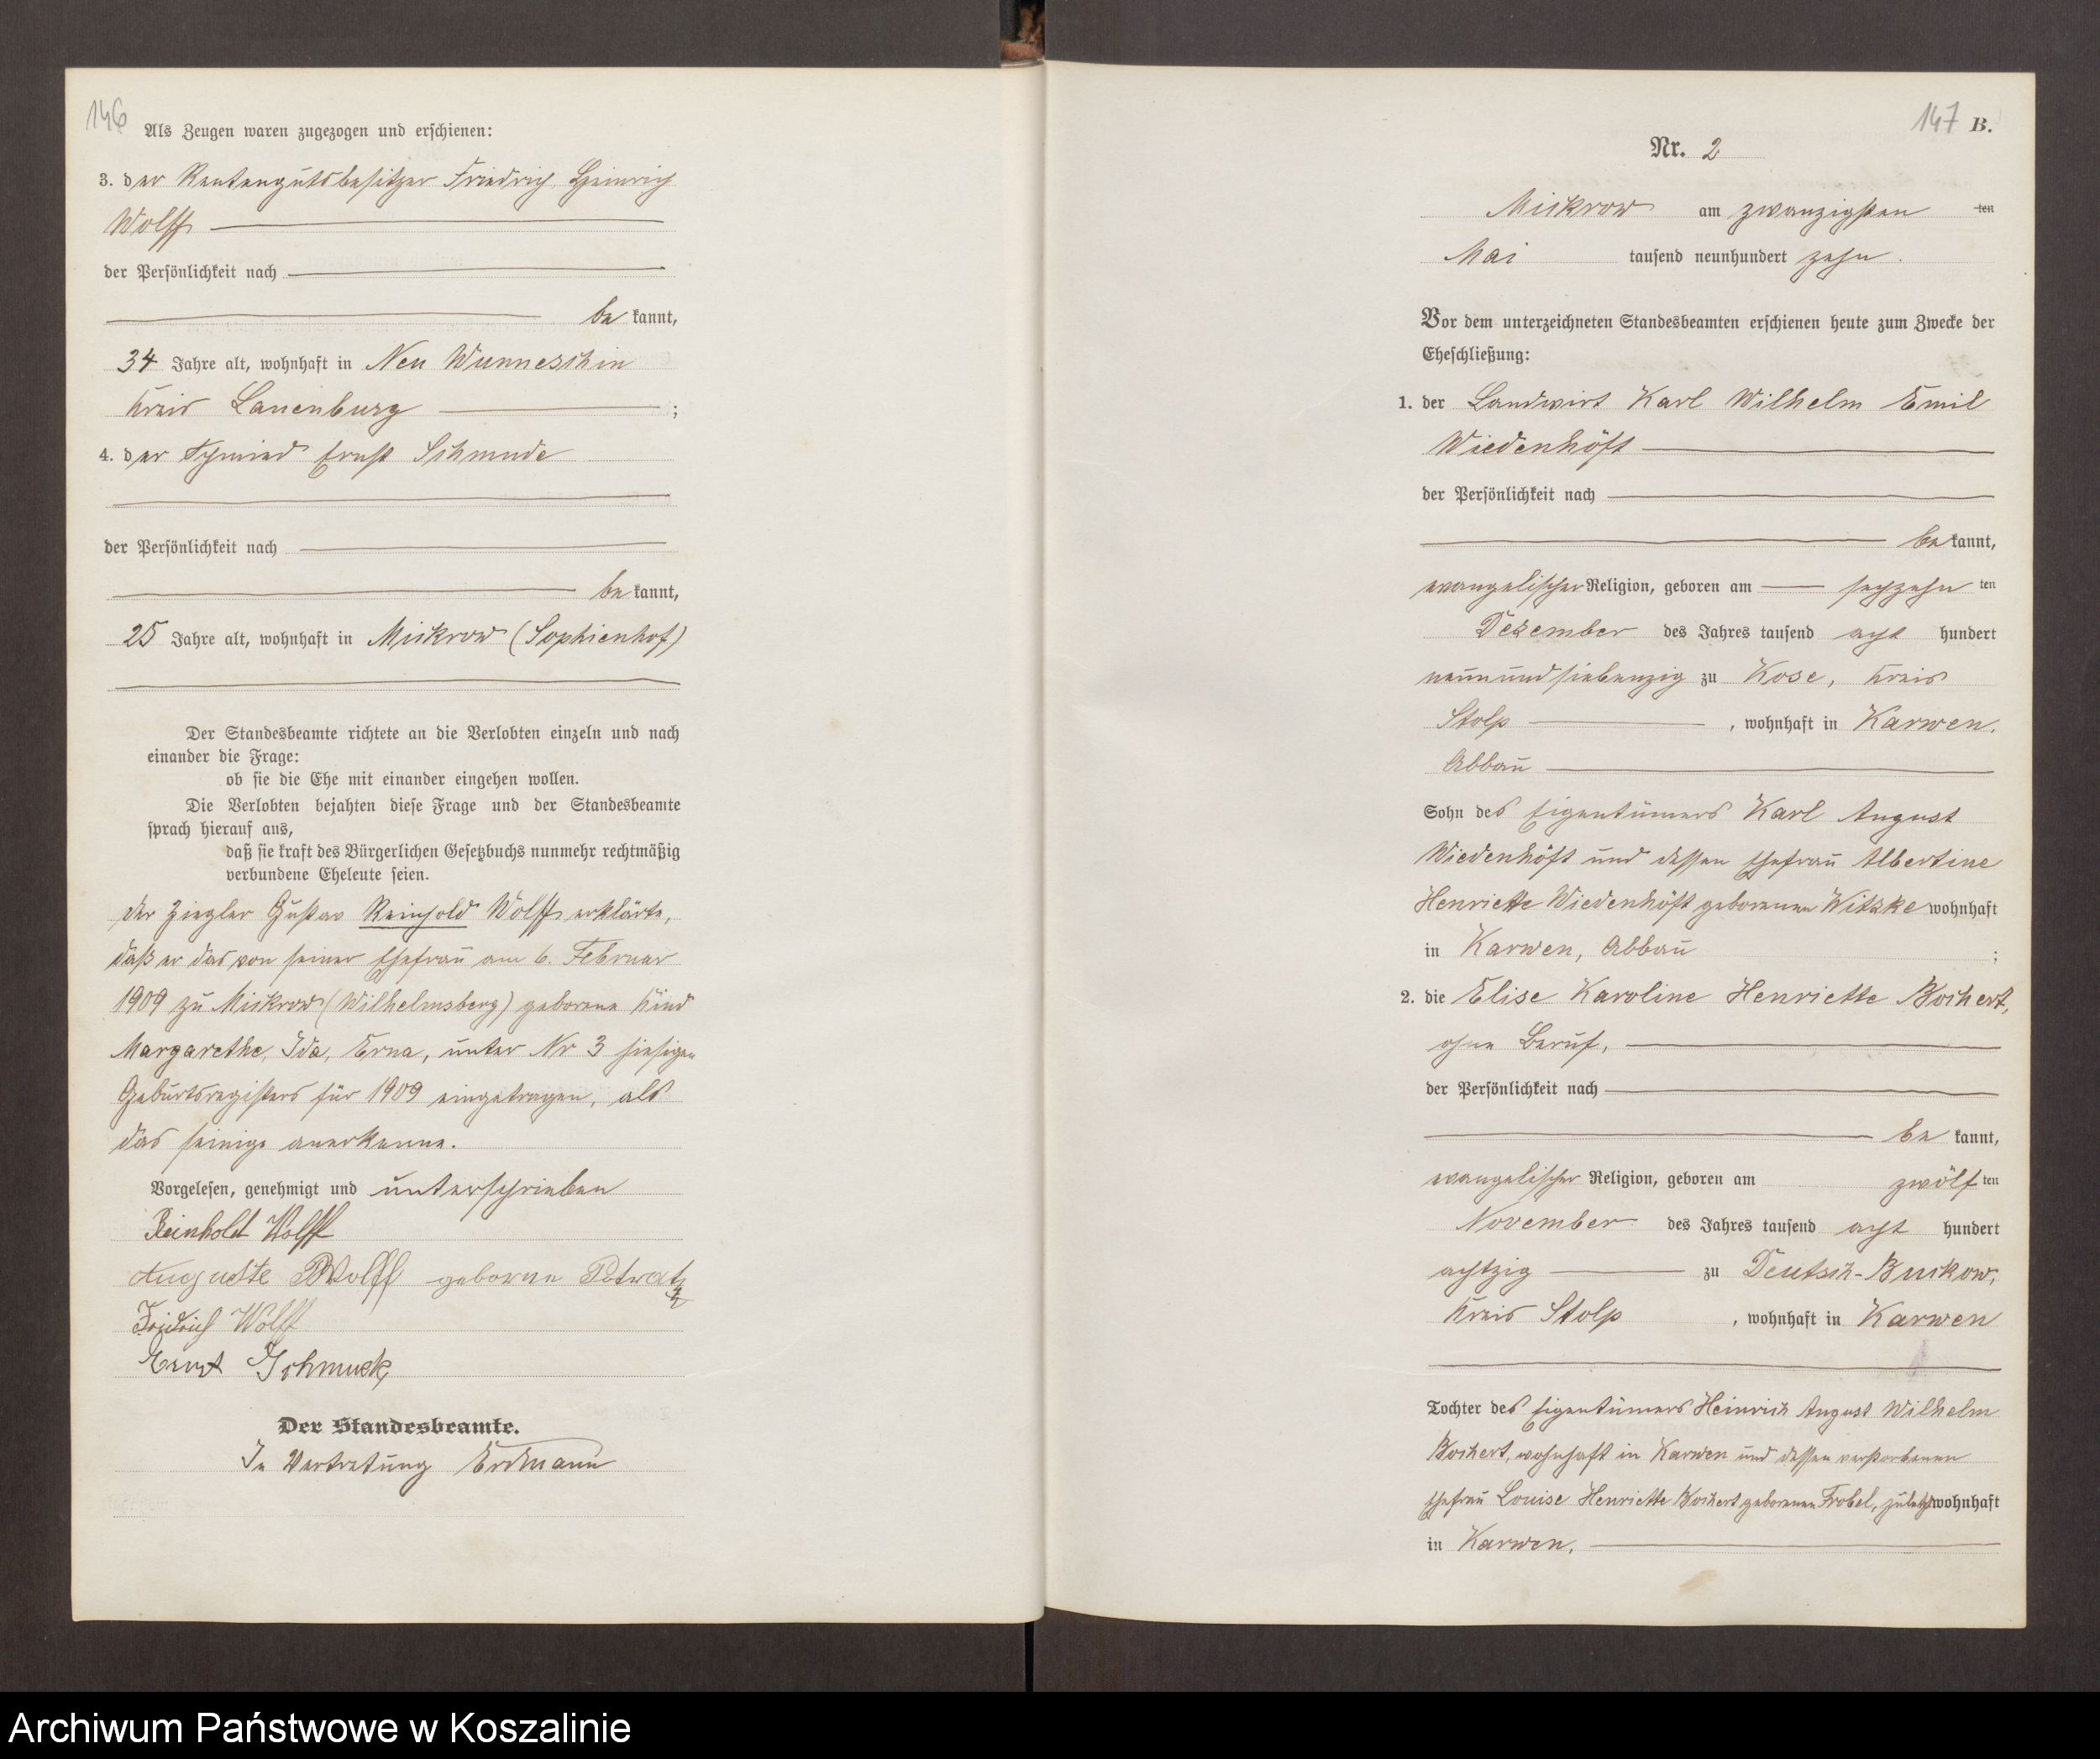 146
Als Zeugen waren zugezogen und erschienen:
3. der Rentengutsbesitzer Friedrich Heinrich
Wolff
der Persönlichkeit nach
be kannt,
34 Jahre alt, wohnhaft in Neu Wunneschin
Kreis Lauenburg ;
4. der Schmied Ernst Schmude
der Persönlichkeit nach
be kannt,
25 Jahre alt, wohnhaft in Mickrow (Sophienhof)
Der Standesbeamte richtete an die Verlobten einzeln und nach
einander die Frage:
ob sie die Ehe mit einander eingehen wollen.
Die Verlobten bejahten diese Frage und der Standesbeamte
sprach hierauf aus,
daß sie kraft des Bürgerlichen Gesetzbuchs nunmehr rechtmäßig
verbundene Eheleute seien.
Der Ziegler Gustav Reinhold Wolff erklärte,
daß er das von seiner Ehefrau am 6. Februar
1909 zu Mickrow (Wilhelmsberg) geborene Kind
Margarethe, Ida, Erna, unter Nr 3 hiesigen
Geburtsregisters für 1909 eingetragen, als
das seinige anerkenne.
Vorgelesen, genehmigt und unterschrieben
Reinhold Wolff
Auguste Wolff geborne Potratz
Friedrich Wolff
Ernst Schmude
Der Standesbeamte.
In Vertretung Erdmann
147 B.
Nr. 2
Mickrow am zwanzigsten ten
Mai tausend neunhundert zehn.
Vor dem unterzeichneten Standesbeamten erschienen heute zum Zwecke der
Eheschließung:
1. der Landwirt Karl Wilhelm Emil
Wiedenhöft
der Persönlichkeit nach
be kannt,
evangelischer Religion, geboren am sechzehn ten
Dezember des Jahres tausend acht hundert
neunundsiebenzig zu Kose, Kreis
Stolp , wohnhaft in Karwen,
Abbau
Sohn des Eigentümers Karl August
Wiedenhöft und dessen Ehefrau Albertine
Henriette Wiedenhöft geborenen Witzke wohnhaft
in Karwen, Abbau ;
2. die Elise Karoline Henriette Boichert,
ohne Beruf,
der Persönlichkeit nach
be kannt,
evangelischer Religion, geboren am zwölf ten
November des Jahres tausend acht hundert
achtzig zu Deutsch-Buckow,
Kreis Stolp , wohnhaft in Karwen
Tochter des Eigentümers Heinrich August Wilhelm
Boichert, wohnhaft in Karwen und dessen verstorbenen
Ehefrau Louise Henriette Boichert geborenen Frobel, zuletzt wohnhaft
in Karwen.
Archiwum Państwowe w Koszalinie